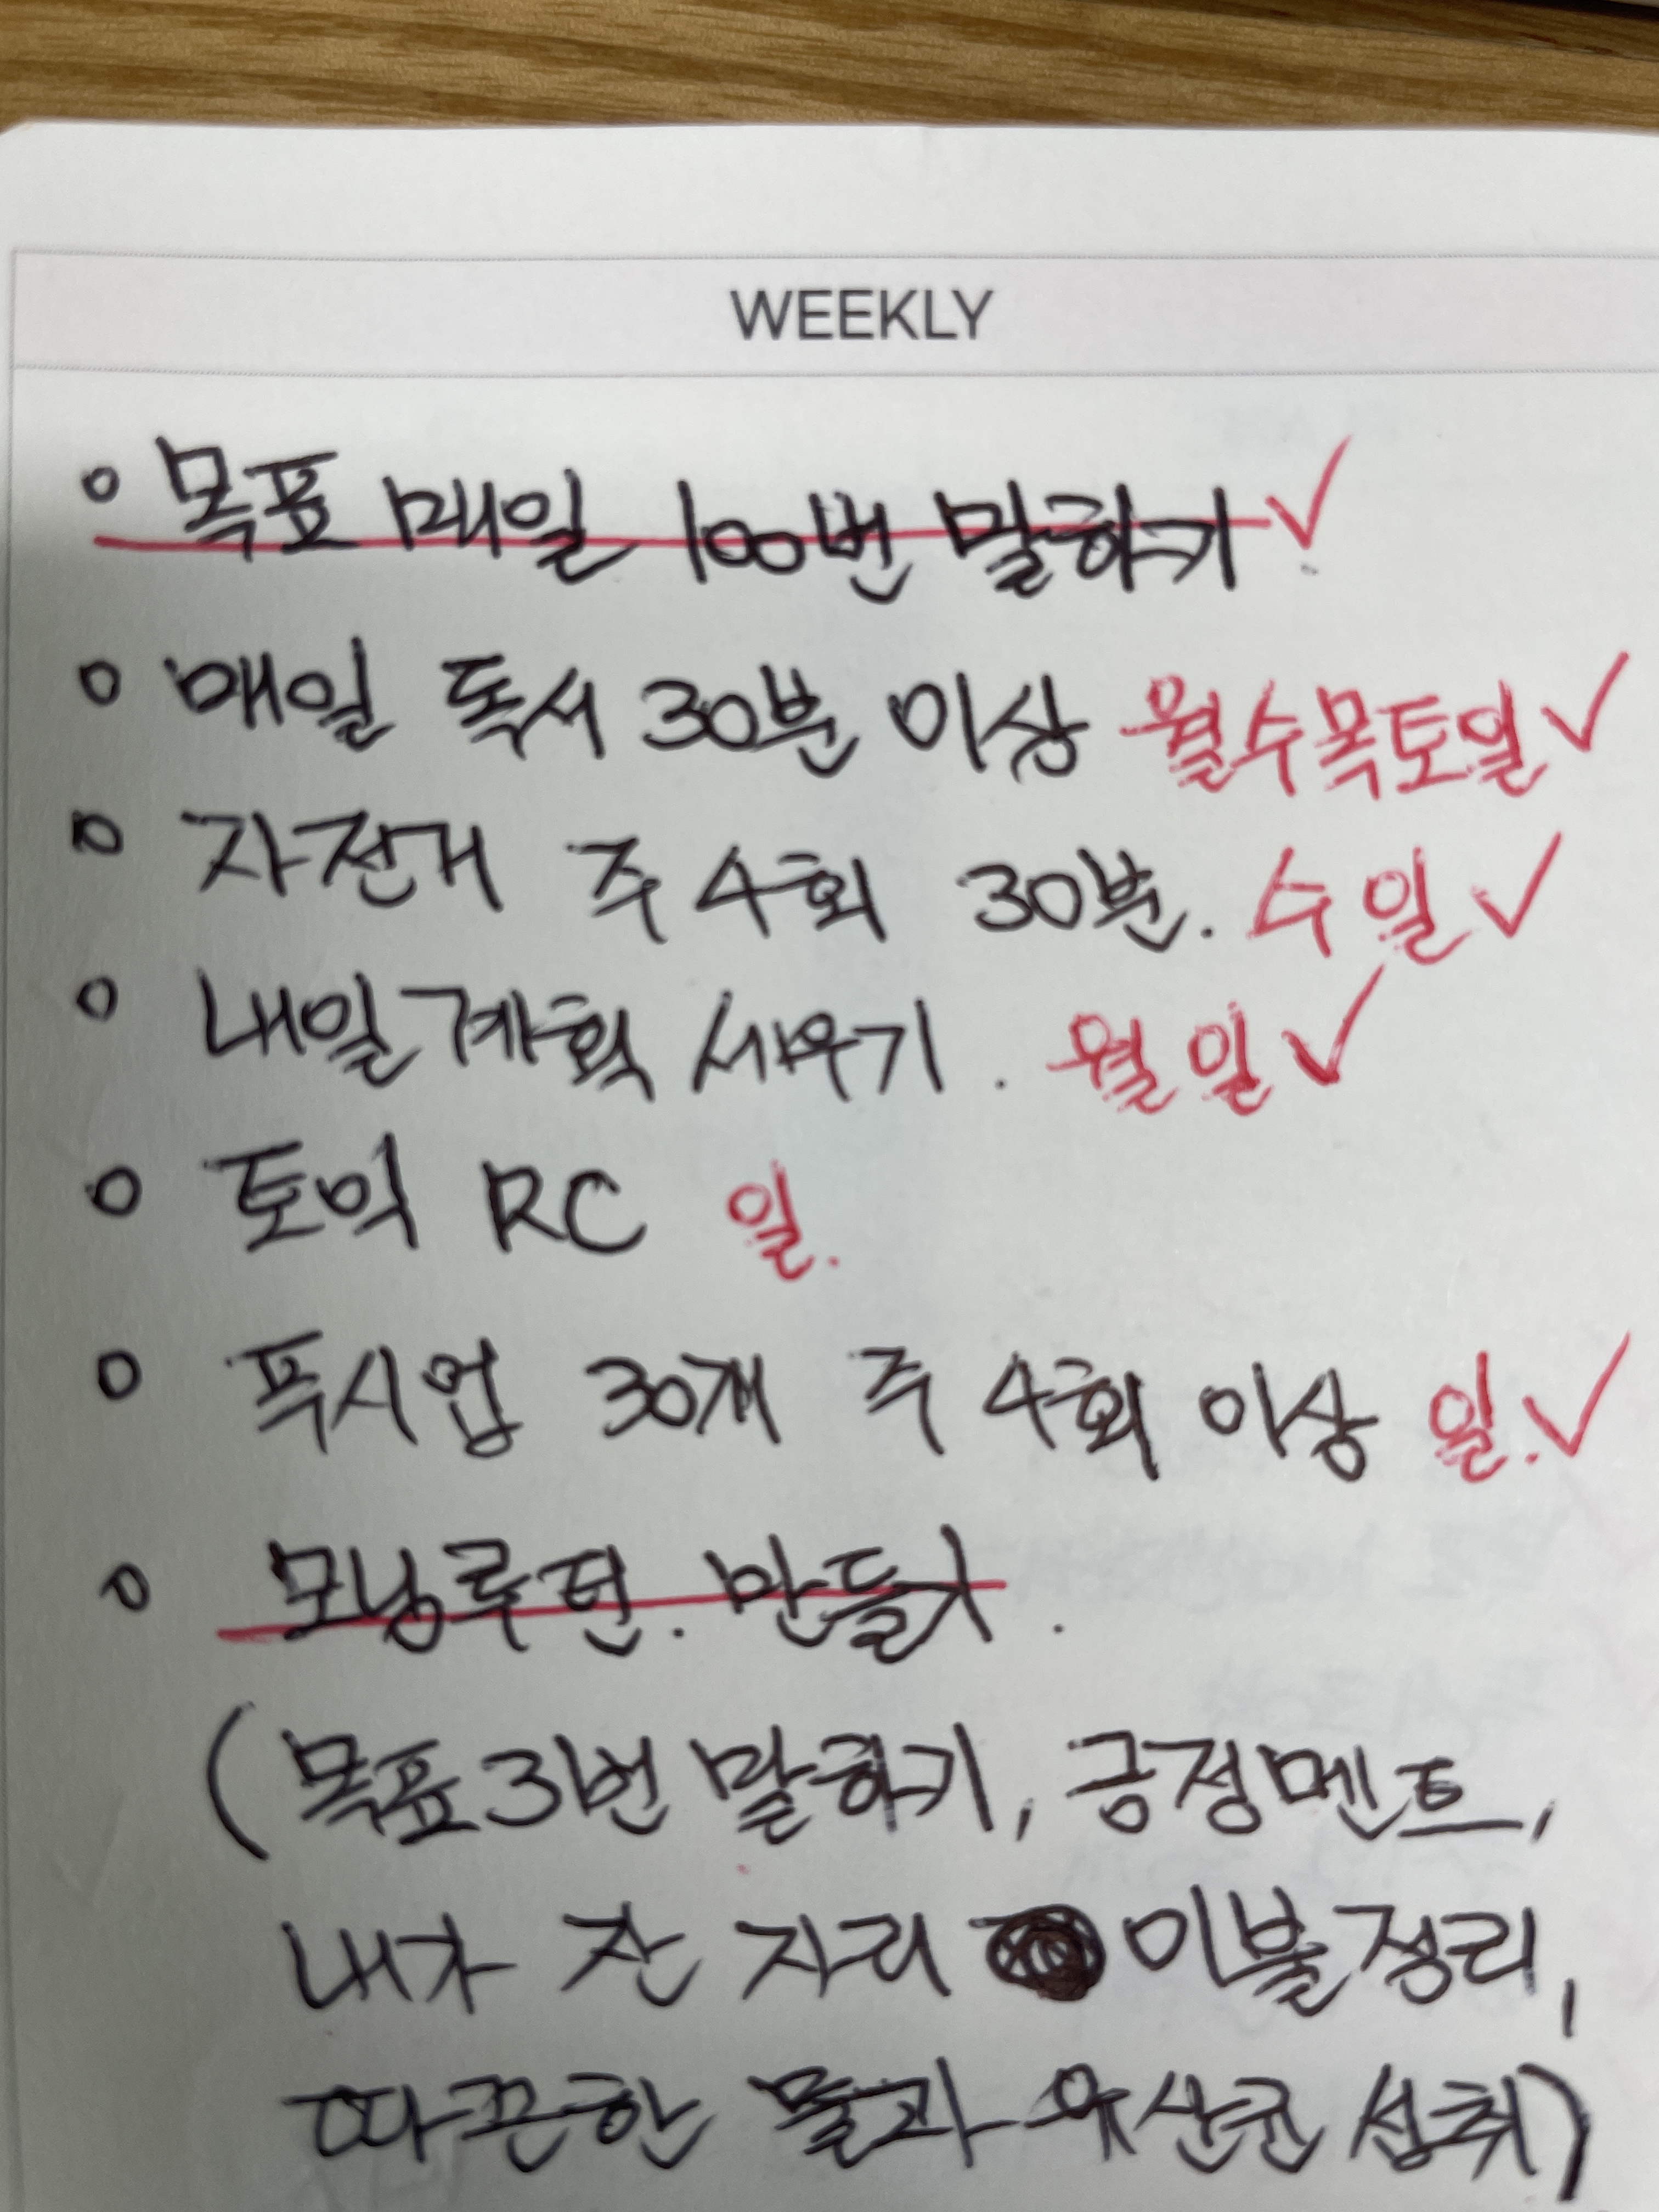 WEEKLY
목표 매일 100번 말하기
매일 독서 30분 이상 월수목토일
자전거 주 4회 30분. 수 일
내일계획 세우기. 월 일
토익 RC 일.
푸시업 30개 주 4회 이상 일.
모닝루틴. 만들기.
(목표 31번 말하기, 긍정멘트,
내가 잔 자리 이불정리,
따끈한 물과 유산균 섭취)